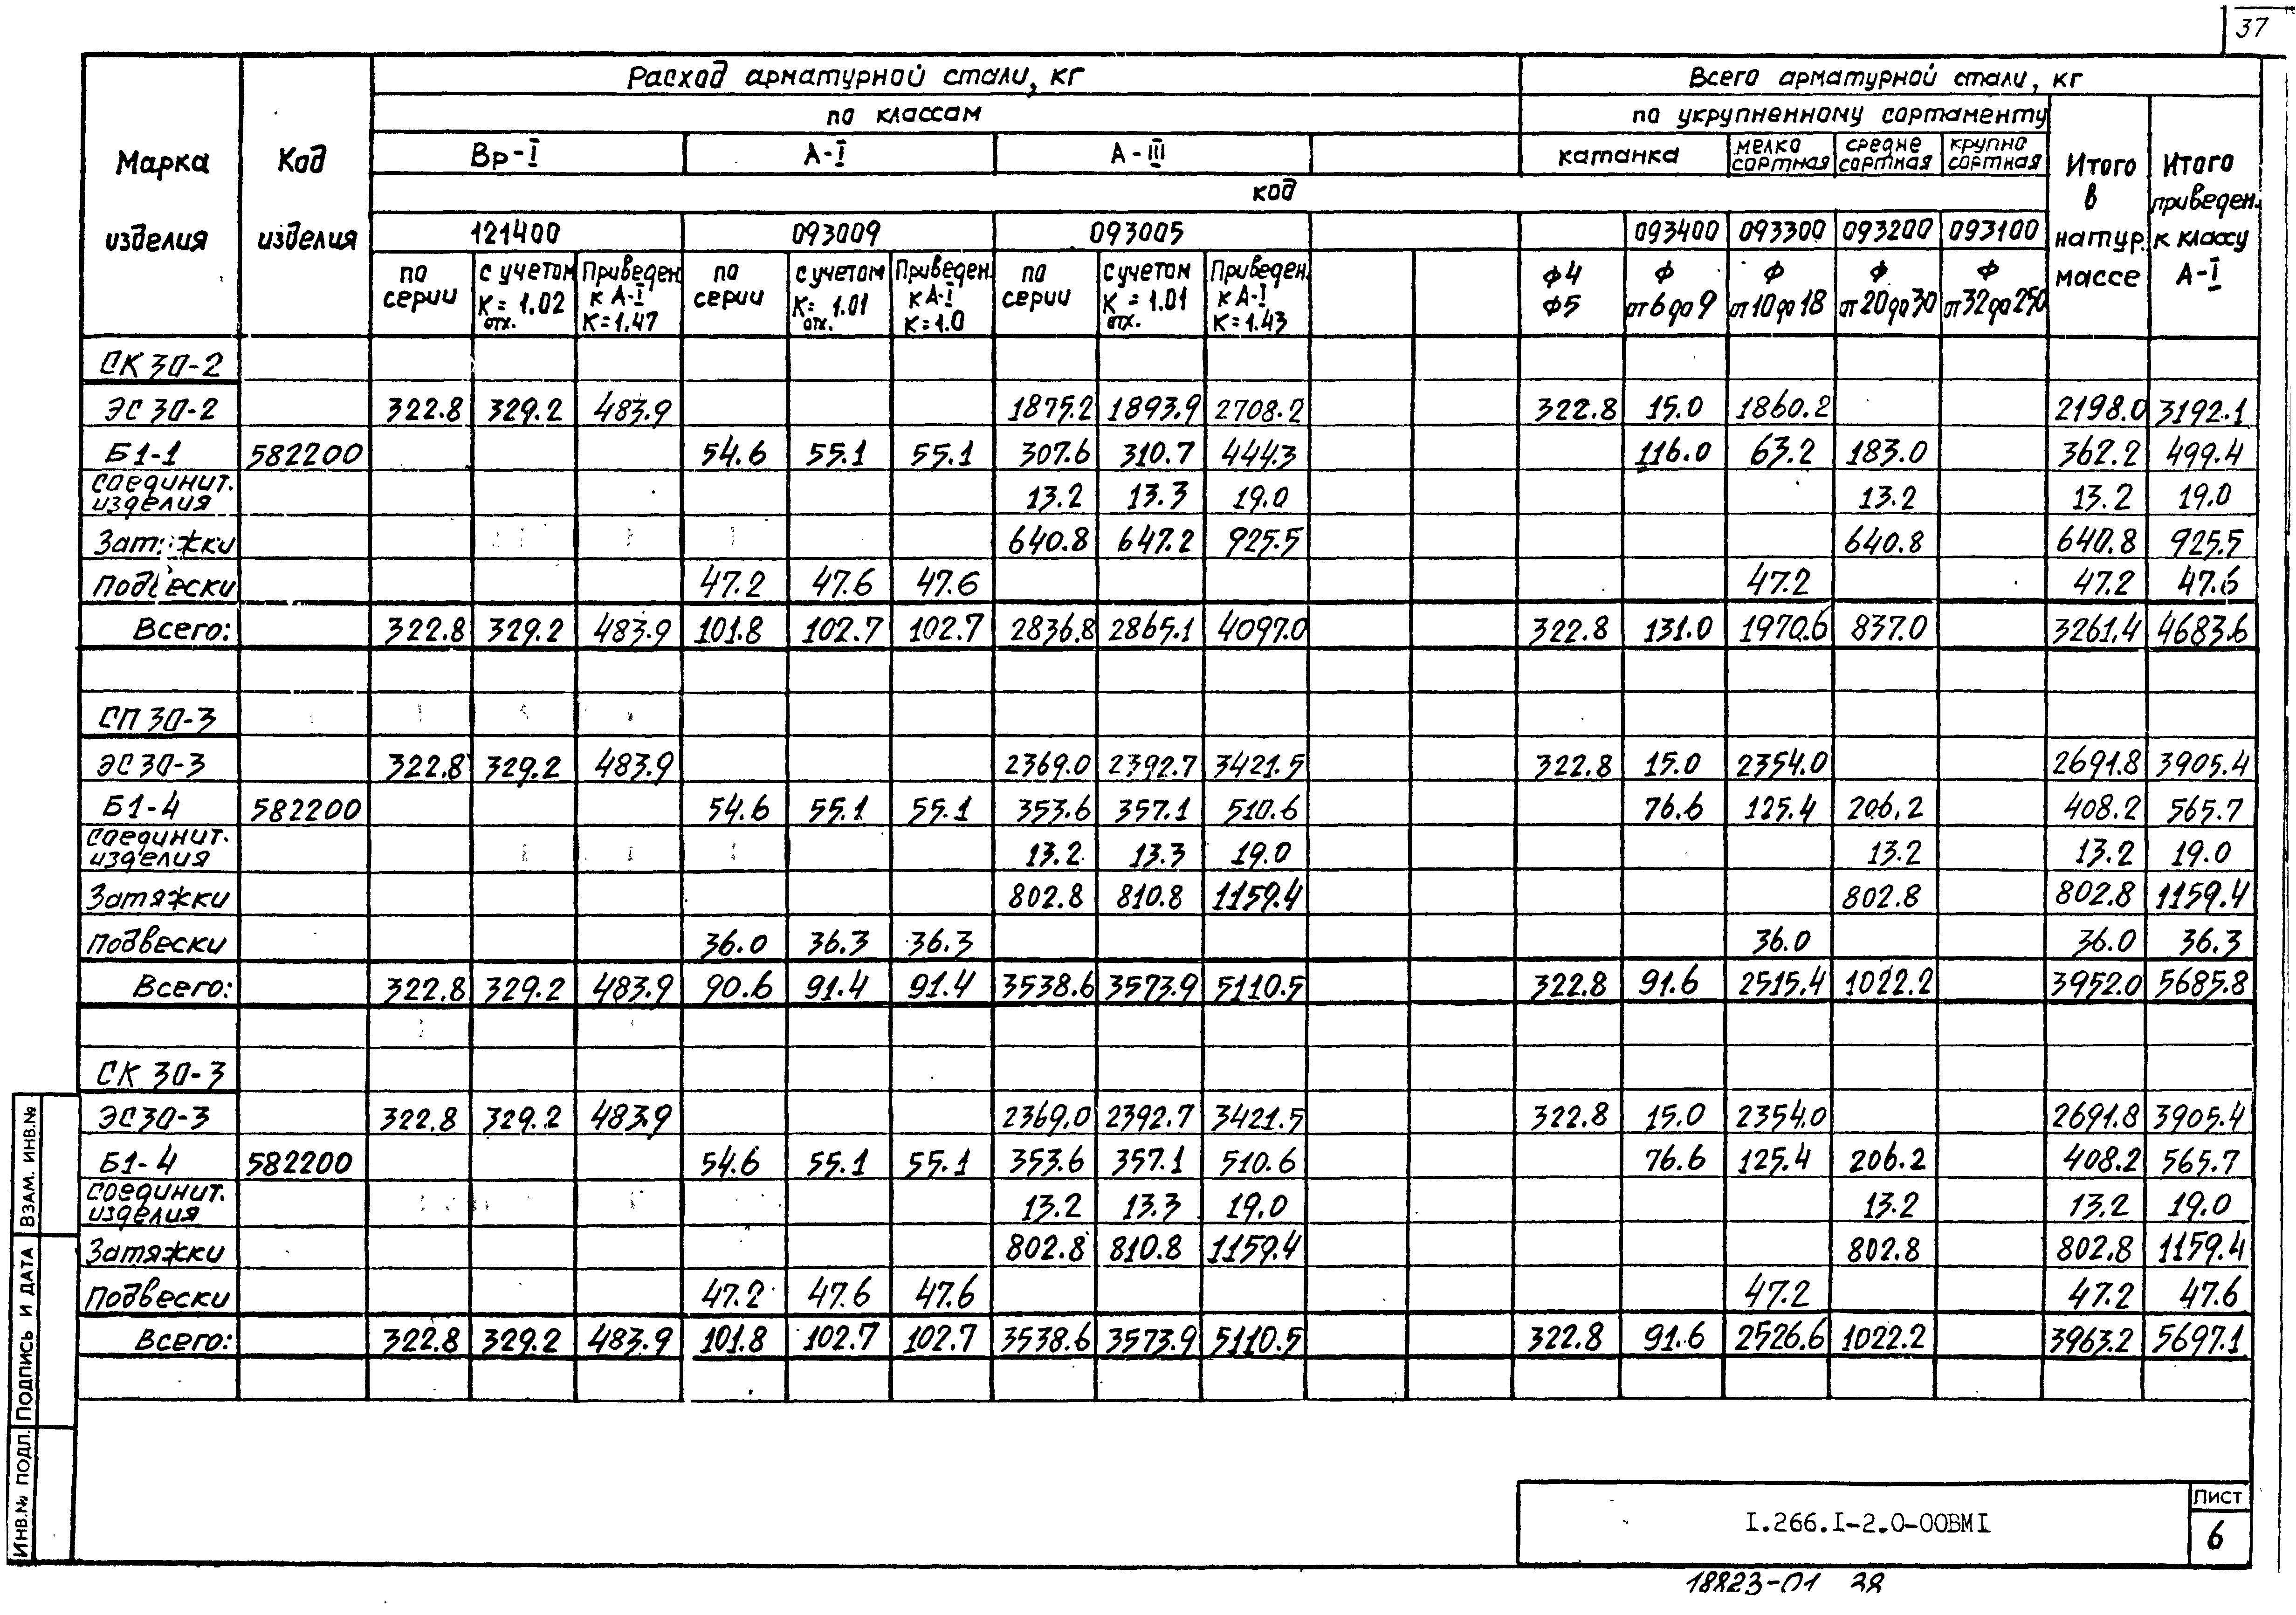 37
Расход арматурной стали, кг Всего арматурной стали, кг
по классам по укрупненному сортаменту
Марка изделия Код изделия Вр-I А-I А-III катанка мелко сортная средне сортная крупно сортная Итого в натур. массе Итого приведен. к классу А-I
код
121400 093009 093005 093400 093300 093200 093100
по серии с учетом К отх. = 1.02 Приведен. к А-I К=1.47 по серии с учетом К отх. = 1.01 Приведен. к А-I К=1.0 по серии с учетом К отх. = 1.01 Приведен. к А-I К=1.43 ф4 ф5 ф от 6 до 9 ф от 10 до 18 ф от 20 до 30 ф от 32 до 250
СК 30-2
ЭС 30-2 322.8 329.2 483.9 1875.2 1893.9 2708.2 322.8 15.0 1860.2 2198.0 3192.1
Б1-1 582200 54.6 55.1 55.1 307.6 310.7 444.3 116.0 63.2 183.0 362.2 499.4
соединит. изделия 13.2 13.3 19.0 13.2 13.2 19.0
Затяжки 640.8 647.2 925.5 640.8 640.8 925.5
Подвески 47.2 47.6 47.6 47.2 47.2 47.6
Всего: 322.8 329.2 483.9 101.8 102.7 102.7 2836.8 2865.1 4097.0 322.8 131.0 1970.6 837.0 3261.4 4683.6
СП 30-3
ЭС 30-3 322.8 329.2 483.9 2369.0 2392.7 3421.5 322.8 15.0 2354.0 2691.8 3905.4
Б1-4 582200 54.6 55.1 55.1 353.6 357.1 510.6 76.6 125.4 206.2 408.2 565.7
соединит. изделия 13.2 13.3 19.0 13.2 13.2 19.0
Затяжки 802.8 810.8 1159.4 802.8 802.8 1159.4
Подвески 36.0 36.3 36.3 36.0 36.0 36.3
Всего: 322.8 329.2 483.9 90.6 91.4 91.4 3538.6 3573.9 5110.5 322.8 91.6 2515.4 1022.2 3952.0 5685.8
СК 30-3
ЭС 30-3 322.8 329.2 483.9 2369.0 2392.7 3421.5 322.8 15.0 2354.0 2691.8 3905.4
Б1-4 582200 54.6 55.1 55.1 353.6 357.1 510.6 76.6 125.4 206.2 408.2 565.7
соединит. изделия 13.2 13.3 19.0 13.2 13.2 19.0
Затяжки 802.8 810.8 1159.4 802.8 802.8 1159.4
Подвески 47.2 47.6 47.6 47.2 47.2 47.6
Всего: 322.8 329.2 483.9 101.8 102.7 102.7 3538.6 3573.9 5110.5 322.8 91.6 2526.6 1022.2 3963.2 5697.1
Взам. инв.№
Подпись и дата
Инв.№ подл.
I.266.I-2.0-00ВМI
Лист
6
18823-01 38